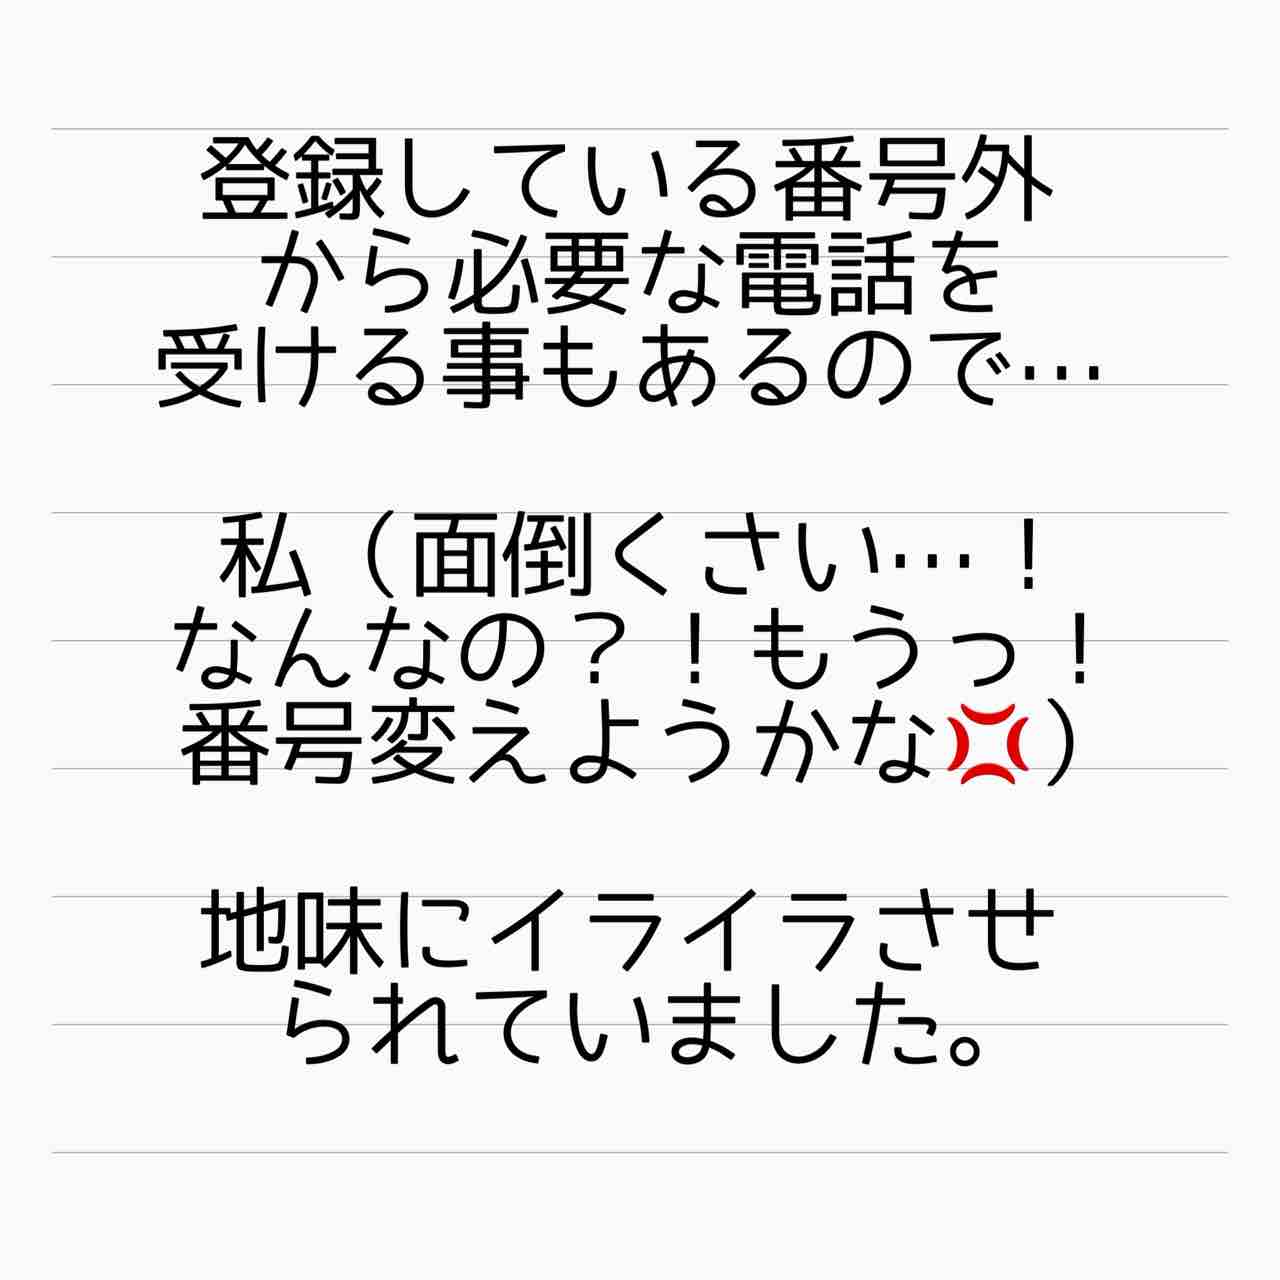 登録している番号外
から必要な電話を
受ける事もあるので…
私（面倒くさい…！
なんなの？！もうっ！
番号変えようかな💢）
地味にイライラさせ
られていました。